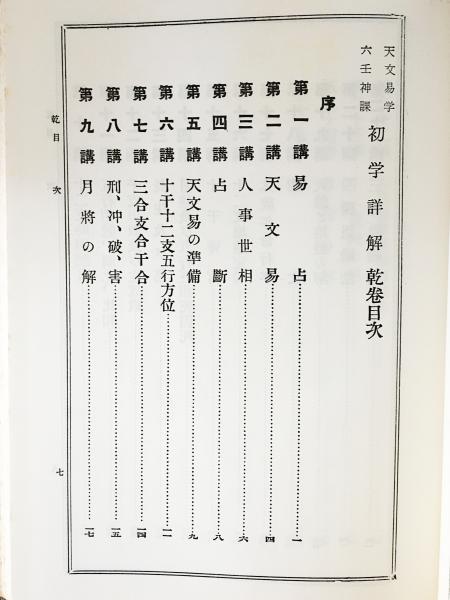 天文易学
六壬神課
初学詳解 乾巻目次
序
第一講 易占……一
第二講 天文易……四
第三講 人事世相……六
第四講 占斷……八
第五講 天文易の準備……九
第六講 十干十二支五行方位……一一
第七講 三合支合干合……一四
第八講 刑、冲、破、害……一五
第九講 月將の解……一七
乾目次
七